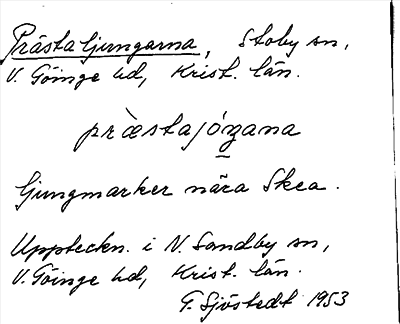 Prästaljungarna, Stoby sn,
V. Göinge hd, Krist. län.
præ̀stajóṉana
Ljungmarker nära Skea.
Uppteckn. i N. Sandby sn,
V. Göinge hd, Krist. län.
G. Sjöstedt 1953